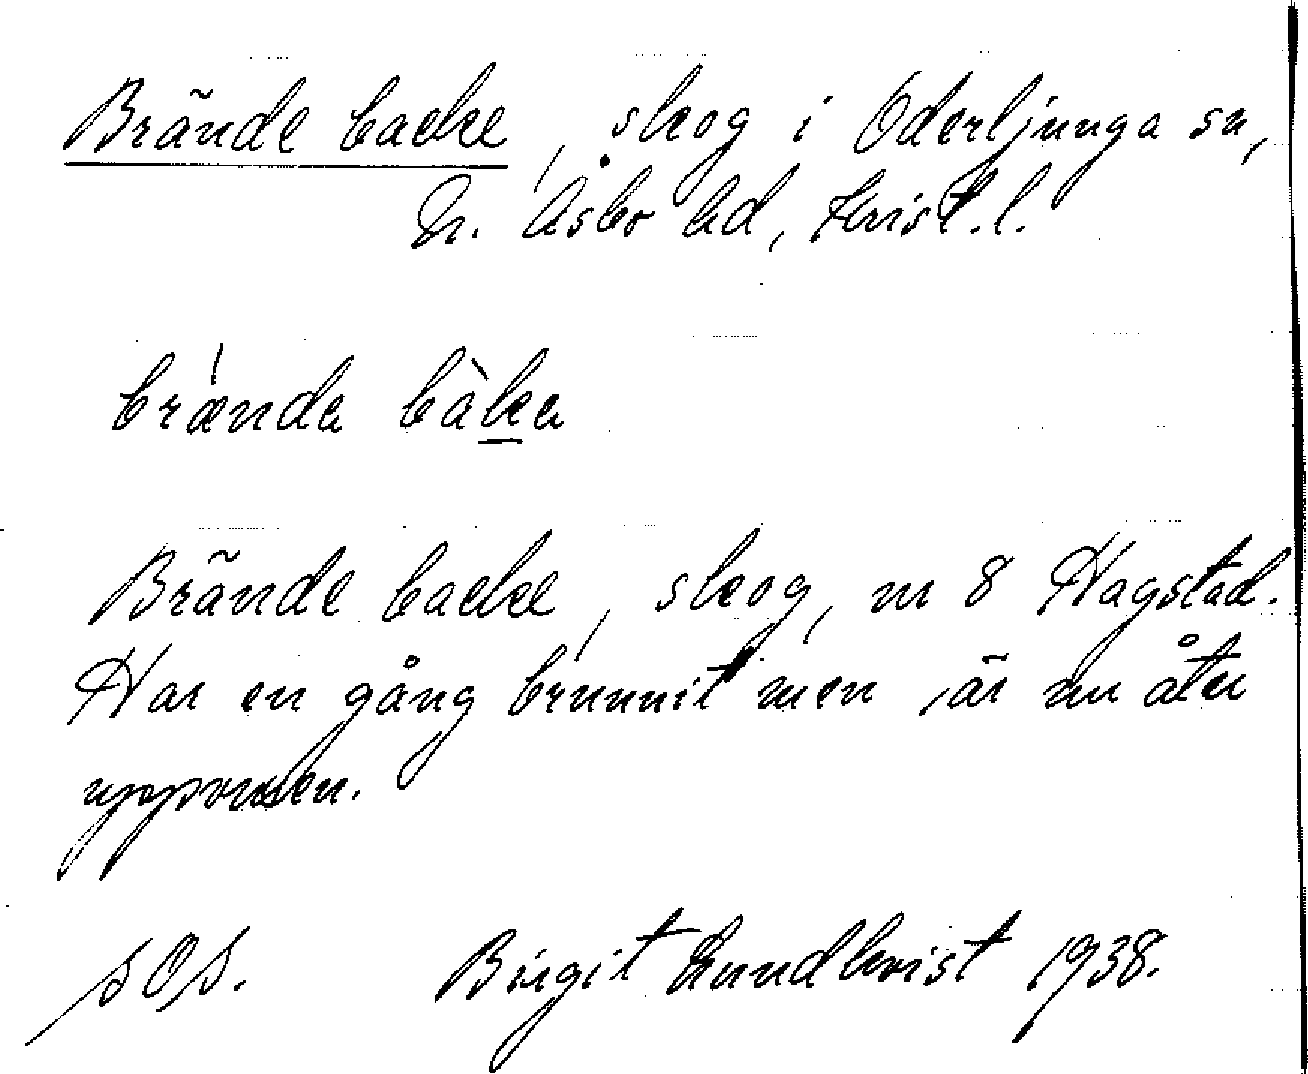 Brände backe, skog i Oderljunga sn,
N. Åsbo hd, Krist. l.
brända bàka
Brände backe, skog, nr 8 Hagstad.
Har en gång brunnit men är nu åter
uppvuxen.
SOS. Birgit Lundkvist 1938.